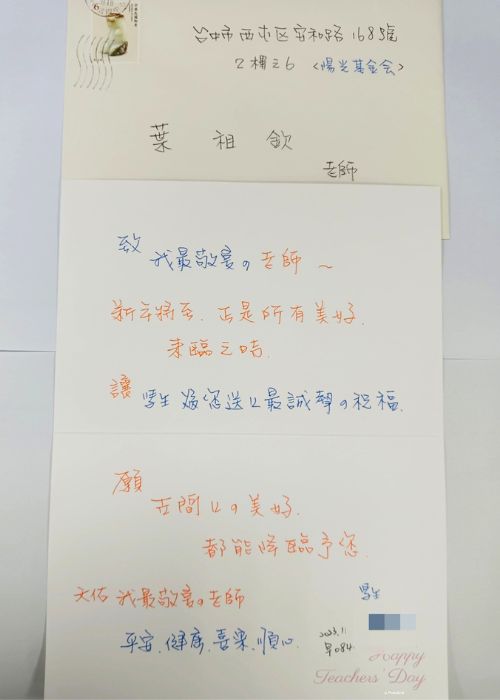 台中市西屯区安和路168號
2樓之6 <陽光基金会>
葉祖欽
老師
致 我最敬愛の老師~
新年將至、正是所有美好、
來臨之時、
讓 學生 為您送上最誠摯の祝福、
願
世間上の美好、
都能降臨予您、
天佑 我最敬愛の老師
平安、健康、喜樂、順心
學生
2023.11
Happy
Teachers' Day